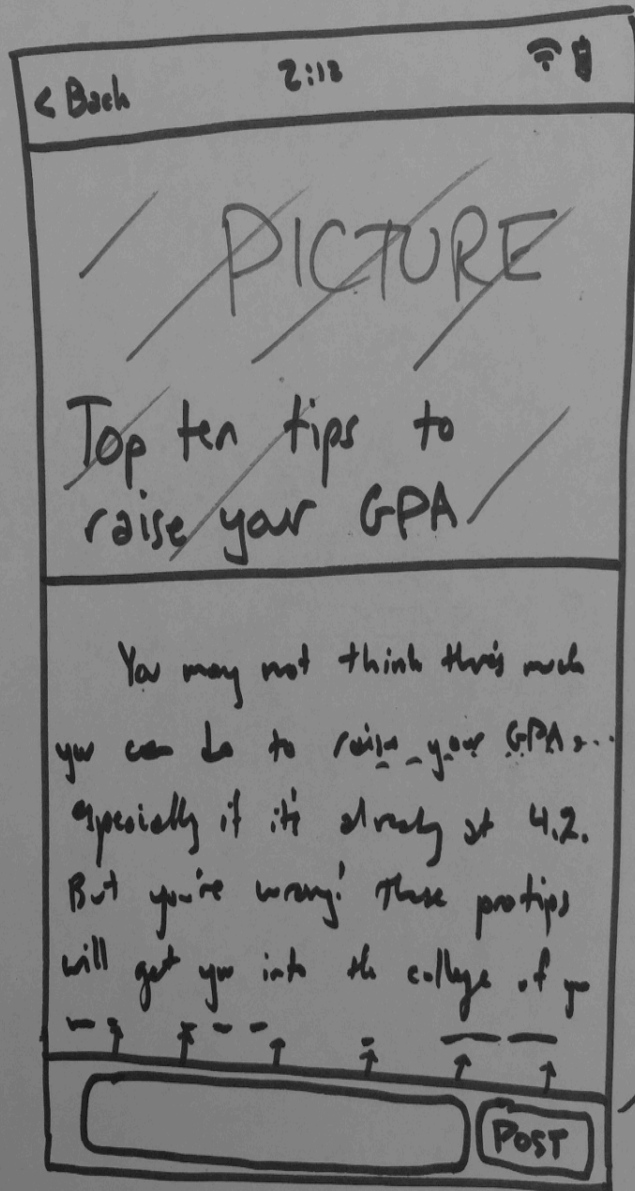 < Back 2:18
PICTURE
Top ten tips to
raise your GPA
You may not think there's much
you can do to raise your GPA...
especially if it's already at 4.2.
But you're wrong! These protips
will get you into the college of yo
POST